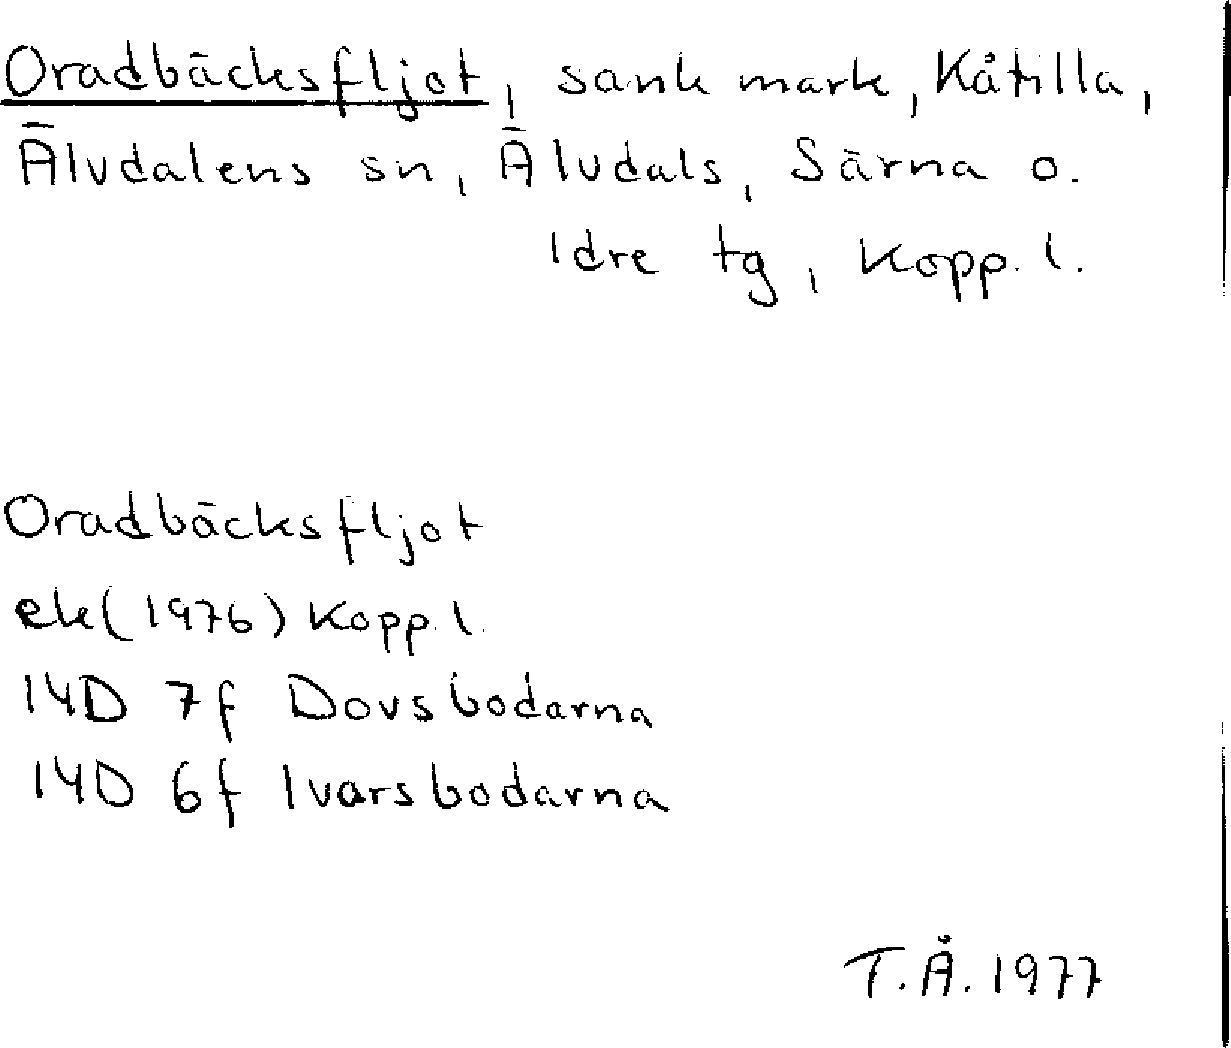 Oradbäcksfljot, sank mark, Kåtilla,
Älvdalens sn, Älvdals, Särna o.
Idre tg, Kopp. l.
Oradbäcksfljot
ek (1976) Kopp. l.
14D 7f Dovsbodarna
14D 6f Ivarsbodarna
T.Å. 1977